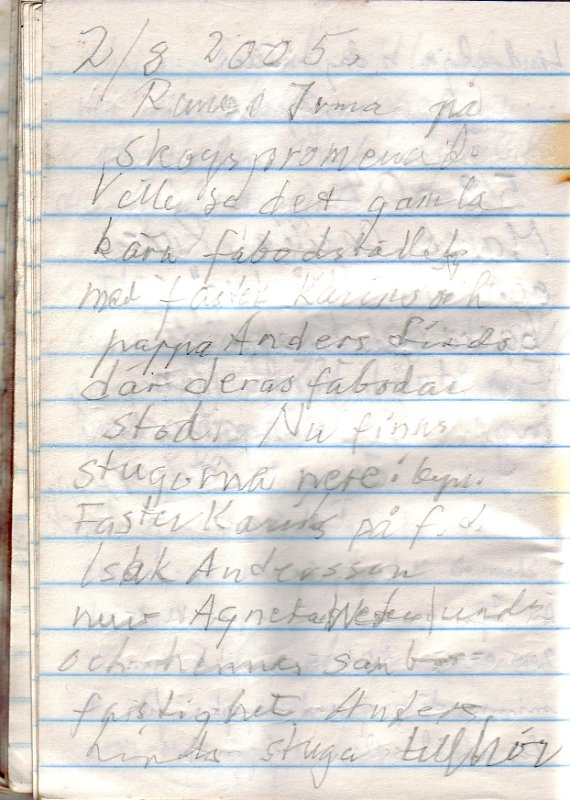 2/8 2005.
Irma på
skogspromenad.
Ville se det gamla
kära fäbodstället
med faster Karins och
pappa Anders Linds
där deras fäbodar
stod. Nu finns
stugorna nere i byn.
Faster Karins på f.d.
Isak Andersson
nuv Agneta
och hennes sambos
fastighet. Anders
Linds stuga tillhör